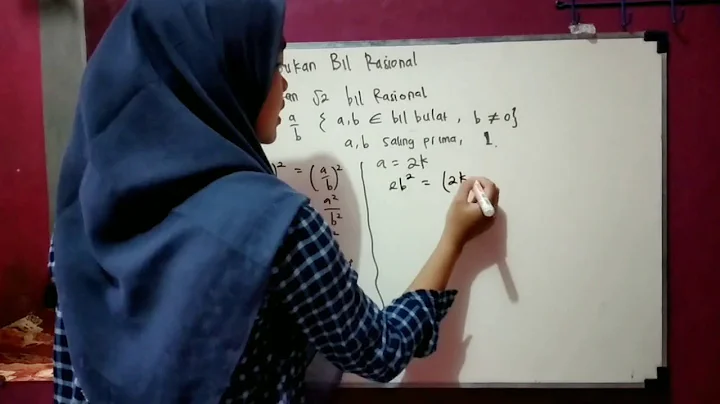 Bil Rasional
√2 bil Rasional
a/b { a,b ∈ bil bulat, b ≠ 0}
a,b saling prima, 1.
² = (a/b)²
a²/b²
²
a = 2k
2b² = (2k